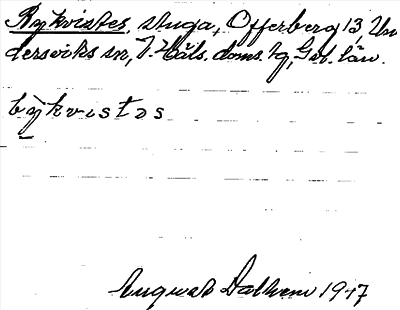 Rykvistes, stuga, Offerberg 13, Un
dersviks sn, V. Häls. doms. hg, Gvl. län.
bỳkvistəs
August Dalheim 1917